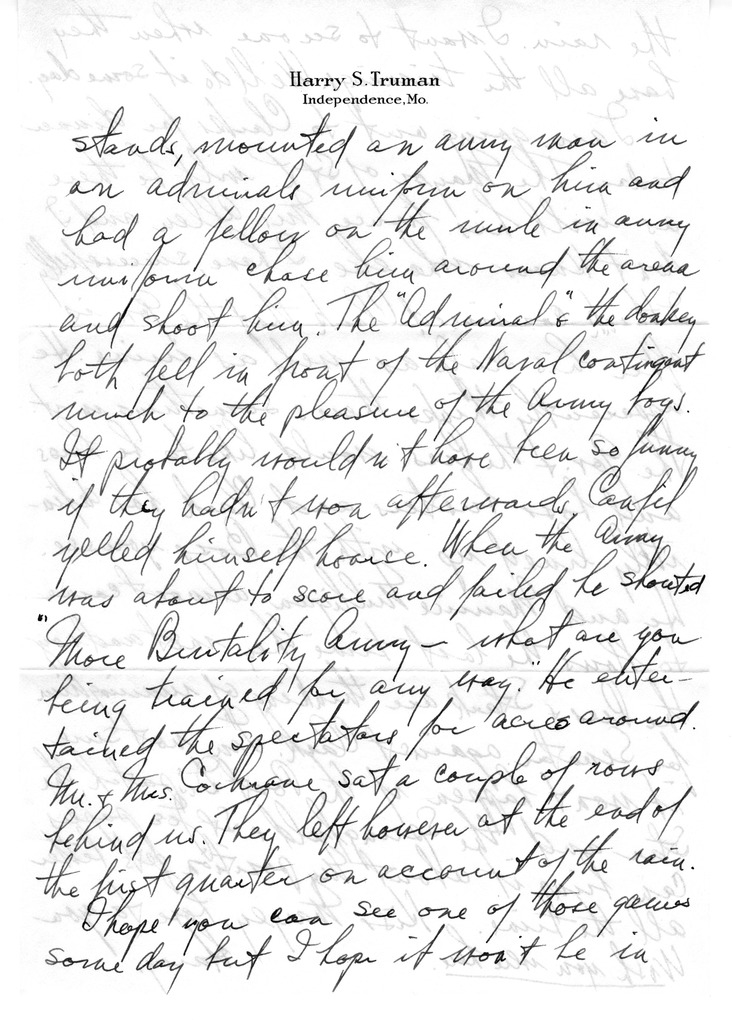 Harry S. Truman
Independence, Mo.
stands, mounted an army man in
an admirals uniform on him and
had a fellow on the mule in army
uniform chase him around the arena
and shoot him. The "Admiral" & the donkey
both fell in front of the Naval contingent
much to the pleasure of the Army boys.
It probably wouldn't have been so funny
if they hadn't won afterwards. Canfil
yelled himself hoarse. When the Army
was about to score and failed he shouted
"More Brutality Army – what are you
being trained for any way." He enter-
tained the spectators for acres around.
Mr. & Mrs. Cochrane sat a couple of rows
behind us. They left however at the end of
the first quarter on account of the rain.
I hope you can see one of those games
some day but I hope it won't be in